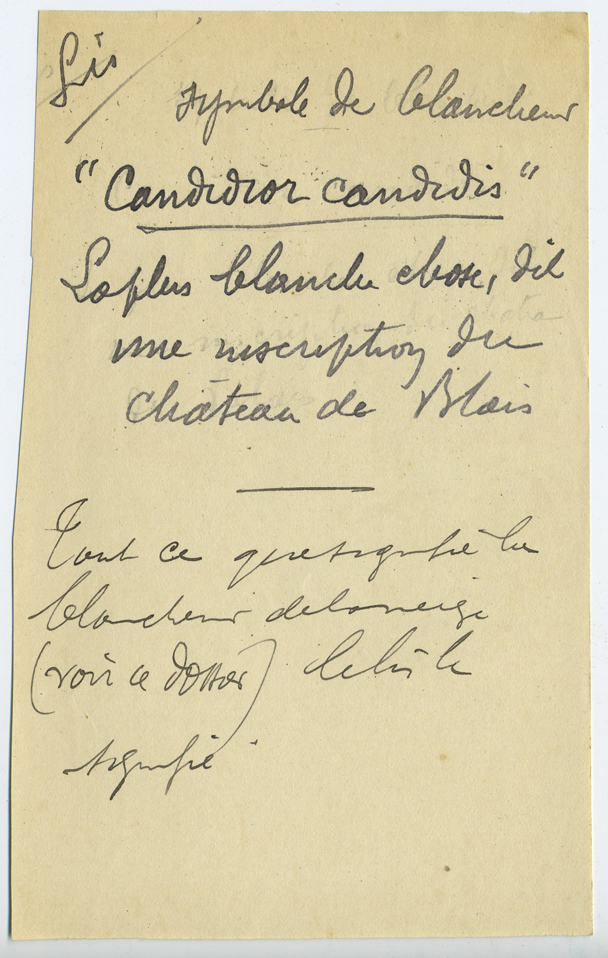 Lis
symbole de blancheur
"Candidior candidis"
La plus blanche chose, dit
une inscription du
Château de Blois
Tout ce que signifie la
blancheur de la neige
(voir ce dossier) le lis le
signifie